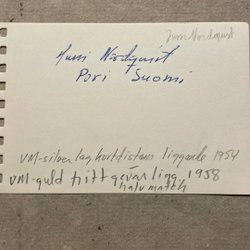 Jussi Nordquist
Jussi Nordquist
Pori Suomi
VM-silver lag kortdistans liggande 1954
VM-guld frittgevär ligg, 1958
halvmatch